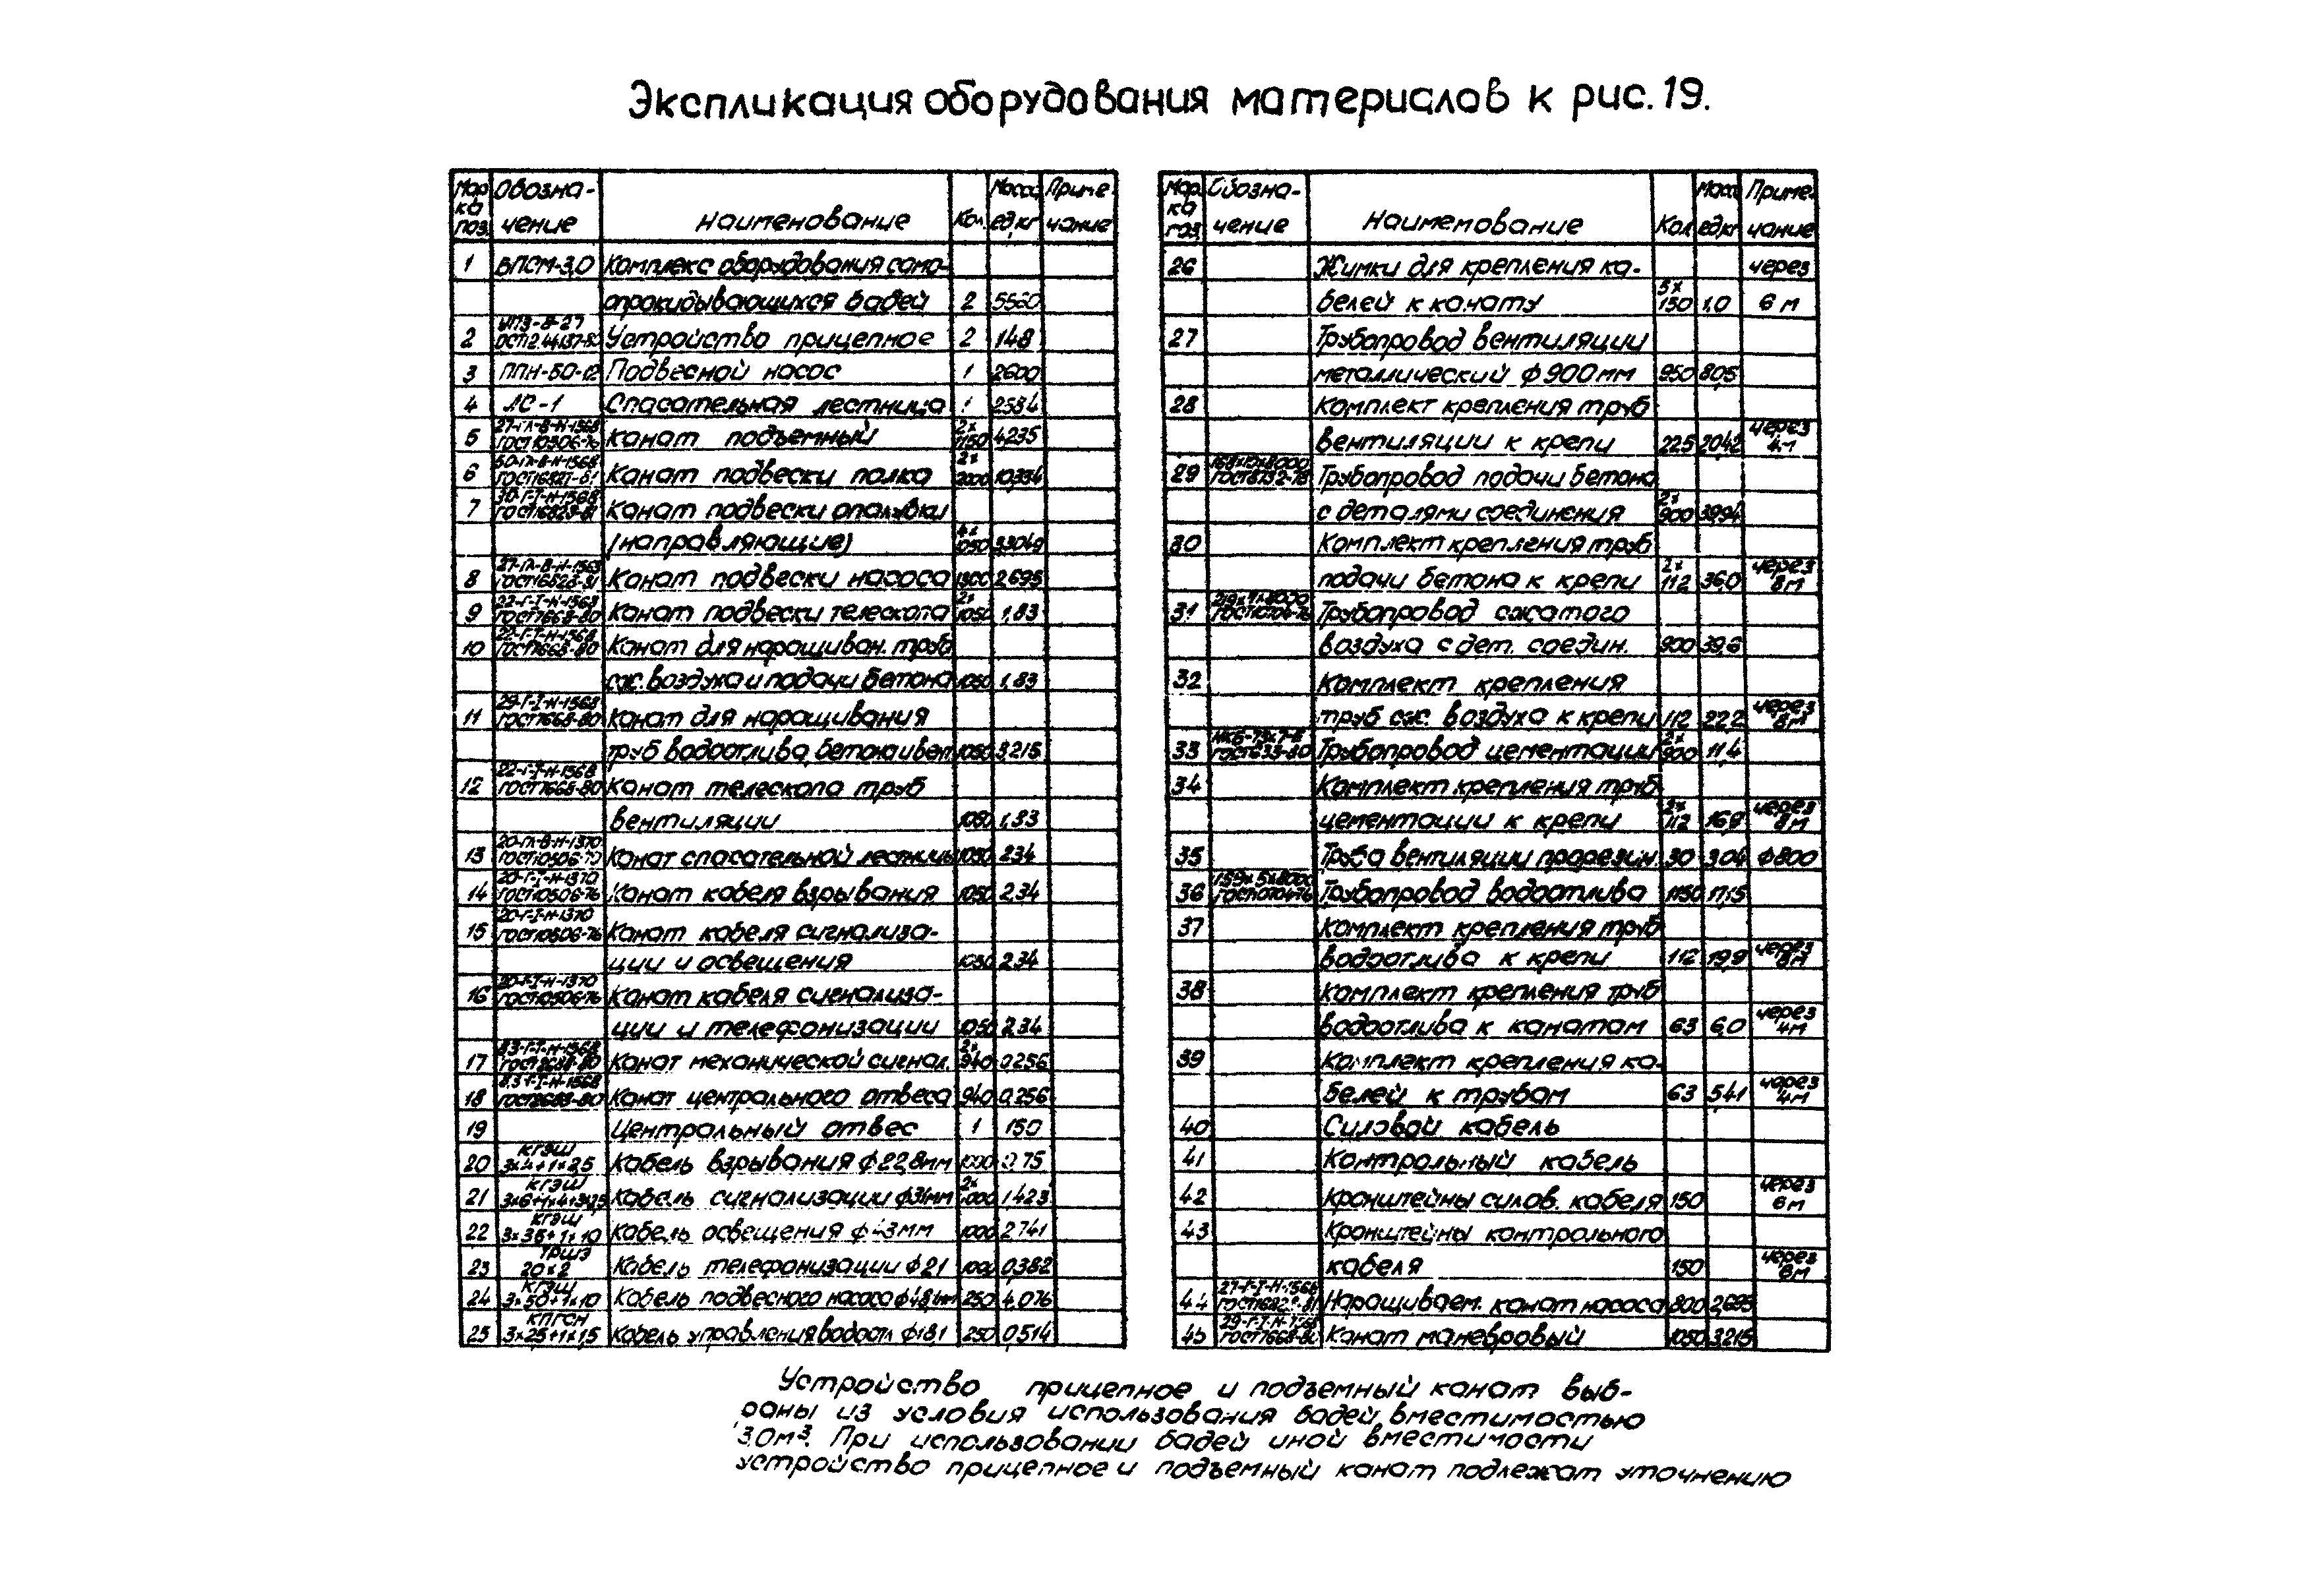 Экспликация оборудования материалов к рис. 19.
Мар Обозна- Масса Приме
ка
поз. чение наименование Кол. ед.кг чание
1 БПСМ-3,0 Комплекс оборудования само-
опрокидывающихся бадей 2 5560
2 Устройство прицепное 2 148
3 ППН-50-12 Подвесной насос 1 2600
4 ЛС-1 Спасательная лестница 1 2584
27-ГЛ-В-Н-1568 2х
5 ГОСТ10506-76 Канат подъемный 1150 4,235
50-ГЛ-В-Н-1568 2х
6 Канат подвески полка 2000 10,334
30-Г-I-Н-1568
7 ГОСТ16828-81 Канат подвески опалубки
(направляющие) 1050 3,3049
27-ГЛ-В-Н-1568
8 ГОСТ16828-81 Канат подвески насоса 1300 2,695
22-Г-I-Н-1568 2х
9 ГОСТ7668-80 Канат подвески телескопа 1050 1,83
22-Г-I-Н-1568
10 ГОСТ7668-80 Канат для наращиван. труб
сж. воздуха и подачи бетона 1050 1,83
29-Г-I-Н-1568
11 ГОСТ7668-80 Канат для наращивания
труб водоотлива, бетона и вент. 1050 3,215
22-Г-I-Н-1568
12 ГОСТ7668-80 Канат телескопа труб
вентиляции 1050 1,83
20-ГЛ-В-Н-1370
13 ГОСТ10506-76 Канат спасательной лестницы 1050 2,34
20-Г-I-Н-1370
14 ГОСТ10506-76 Канат кабеля взрывания 1050 2,34
20-Г-I-Н-1370
15 ГОСТ10506-76 Канат кабеля сигнализа-
ции и освещения 1050 2,34
20-Г-I-Н-1370
16 ГОСТ10506-76 Канат кабеля сигнализа-
ции и телефонизации 1050 2,34
8,3-Г-I-Н-1568 2х
17 Канат механической сигнал. 940 0,256
8,3-Г-I-Н-1568
18 Канат центрального отвеса 940 0,256
19 Центральный отвес 1 150
КГЭШ
20 3×4+1×2,5 Кабель взрывания ф22,8мм 1000 0,75
КГЭШ 2х
21 Кабель сигнализации ф31мм 1000 1,423
КГЭШ
22 3×35+1×10 Кабель освещения ф43мм 1000 2,741
ТРШЭ
23 20×2 Кабель телефонизации ф21 1000 0,382
КГЭШ
24 3×50+1×10 Кабель подвесного насоса 250 4,076
КПГСН
25 3×25+1×1,5 Кабель управления водоотл. ф18,1 250 0,514
Мар. Обозна- Масса Приме-
ка
поз. чение Наименование Кол. ед.кг чание
26 Жимки для крепления ка- через
5х
белей к канату 150 1,0 6 м
27 Трубопровод вентиляции
металлический ф900мм 950 80,5
28 Комплект крепления труб
через
вентиляции к крепи 225 20,42 4м
168×10×8000
29 ГОСТ8732-78 Трубопровод подачи бетона
2х
с деталями соединения 900 39,94
30 Комплект крепления труб
2х через
подачи бетона к крепи 112 36,0 8м
219×7×8000
31 ГОСТ10704-76 Трубопровод сжатого
воздуха с дет. соедин. 900 39,6
32 Комплект крепления
через
труб сж. воздуха к крепи 112 22,2 8м
2х
33 ГОСТ633-80 Трубопровод цементации 900 11,4
34 Комплект крепления труб
2х через
цементации к крепи 112 16,8 8м
35 Труба вентиляции прорезин. 30 3,04 ф800
159×5×8000
36 ГОСТ10704-76 Трубопровод водоотлива 1150 17,15
37 Комплект крепления труб
через
водоотлива к крепи 112 19,9 8м
38 Комплект крепления труб
через
водоотлива к канатам 63 6,0 4м
39 Комплект крепления ка-
через
белей к трубам 63 5,41 4м
40 Силовой кабель
41 Контрольный кабель
через
42 Кронштейны силов. кабеля 150 6м
43 Кронштейны контрольного
через
кабеля 150 6м
27-Г-I-Н-1568
44 ГОСТ16828-81 Наращиваем. канат насоса 800 2,695
29-Г-I-Н-1568
45 ГОСТ7668-80 Канат маневровый 1050 3,215
Устройство прицепное и подъемный канат выб-
раны из условия использования бадей, вместимостью
3,0м³. При использовании бадей иной вместимости
устройство прицепное и подъемный канат подлежат уточнению